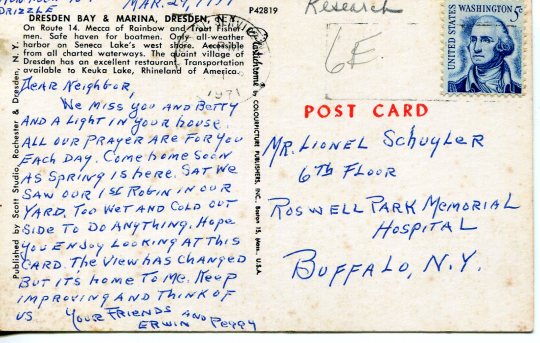 MAR. 29, 1971
DRIZZLE
DRESDEN BAY & MARINA, DRESDEN, N.Y.
On Route 14. Mecca of Rainbow and Trout Fisher-
men. Safe haven for boatmen. Only all-weather
harbor on Seneca Lake's west shore. Accessible
from all charted waterways. The quaint village of
Dresden has an excellent restaurant. Transportation
available to Keuka Lake, Rhineland of America.
DEAR NEIGHBOR,
WE MISS YOU AND BETTY
AND A LIGHT IN YOUR HOUSE.
ALL OUR PRAYER ARE FOR YOU
EACH DAY. COME HOME SOON
AS SPRING IS HERE. SAT WE
SAW OUR 1ST ROBIN IN OUR
YARD. TOO WET AND COLD OUT
SIDE TO DO ANYTHING. HOPE
YOU ENJOY LOOKING AT THIS
CARD. THE VIEW HAS CHANGED
BUT IT'S HOME TO ME. KEEP
IMPROVING AND THINK OF
US YOUR FRIENDS AND
ERWIN PEGGY
Published by Scott Studio, Rochester & Dresden, N.Y.
P42819
Plastichrome ® by COLOURPICTURE PUBLISHERS, INC., Boston 15, Mass., U.S.A.
1971
Research
6E
UNITED STATES
WASHINGTON
5¢
POST CARD
MR. LIONEL SCHUYLER
6TH FLOOR
ROSWELL PARK MEMORIAL
HOSPITAL
BUFFALO, N.Y.